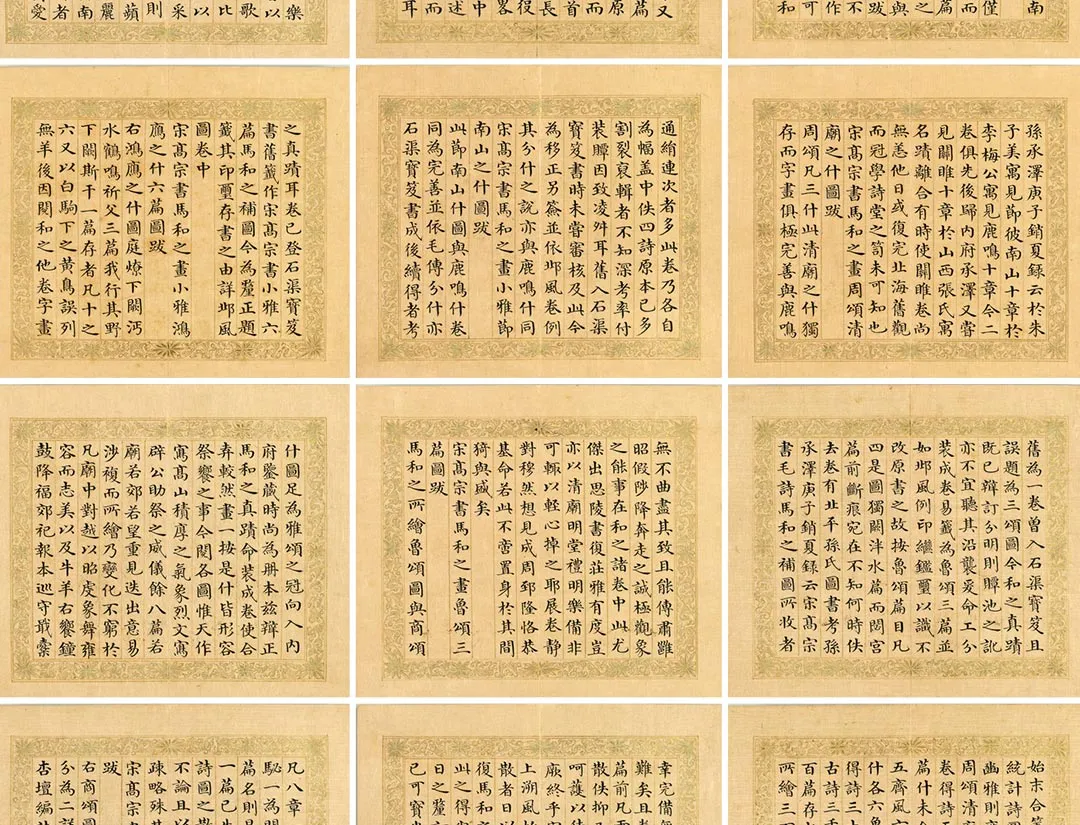 樂
以
歌
比
以
采
則
蘋
麗
南
者
愛
又
篇
原
而
首
長
役
畧
中
述
而
耳
南
僅
篇
之
與
跋
不
作
可
和
之真蹟耳卷已登石渠寶笈
書舊籤作宋髙宗書小雅六
篇馬和之補圖今為釐正題
籤其印璽存書之由詳邶風
圖卷中
宋髙宗書馬和之畫小雅鴻
鴈之什六篇圖跋
右鴻鴈之什圖庭燎下闕沔
水鶴鳴祈父三篇我行其野
下闕斯干一篇存者凡十之
六又以白駒下之黃鳥誤列
無羊後因閱和之他卷字畫
通綃連次者多此卷乃各自
為幅盖中佚四詩原本已多
割裂裒輯者不知深考率付
裝贉因致凌舛耳舊入石渠
寶笈書時未嘗審核及此今
為移正另簽並依邶風卷例
其分什之說亦與鹿鳴什同
宋髙宗書馬和之畫小雅節
南山之什圖跋
此節南山什圖與鹿鳴什卷
同為完善並依毛傳分什亦
石渠寶笈書成後續得者考
孫承澤庚子銷夏錄云於朱
子美寓見節彼南山十章於
李梅公寓見鹿鳴十章今二
卷俱先後歸內府承澤又嘗
見關雎十章於山西張氏寓
名蹟離合有時使關雎卷尚
無恙他日或復完北海舊觀
而冠學詩堂之笥未可知也
宋髙宗書馬和之畫周頌清
廟之什圖跋
周頌凡三什此清廟之什獨
存而字畫俱極完善與鹿鳴
什圖足為雅頌之冠向入內
府鑒藏時尚為册本兹辯正
馬和之真蹟命裝成卷使合
弆較然畫一按是什皆形容
祭饗之事今閱各圖惟天作
寫髙山積厚之氣象烈文寫
辟公助祭之威儀餘八篇若
廟若郊若望重見迭出意易
涉複而所繪乃變化不窮於
凡廟中對越以昭虔象舞雍
容而志美以及牛羊右饗鐘
鼓降福郊祀報本巡守戢櫜
無不曲盡其致且能傳肅雝
昭假陟降奔走之誠極觀象
之能事在和之諸卷中此尤
傑出思陵書復莊雅有度豈
亦以清廟明堂禮明樂備非
可輒以輕心掉之耶展卷靜
對穆然想見成周郅隆恪恭
基命若此不啻置身於其間
猗與盛矣
宋髙宗書馬和之畫魯頌三
篇圖跋
馬和之所繪魯頌圖與商頌
舊為一卷曽入石渠寶笈且
誤題為三頌圖今和之真蹟
既已辯訂分明則贉池之訛
亦不宜聽其沿襲爰命工分
裝成卷易籤為魯頌三篇並
如邶風例印繼鑑璽以識不
改原書之故按魯頌篇目凡
四是圖獨闕泮水篇而閟宮
篇前斷痕宛在不知何時佚
去卷有北平孫氏圖書考孫
承澤庚子銷夏録云宋髙宗
書毛詩馬和之補圖所收者
凡八章
駜一為
篇名則
一篇已
詩圖之
不論且以
疎略殊
宋髙宗
跋
右商頌圖
分為二
杏壇編
幸完備
難矣且
篇前凡
散佚抑
呵護以
厥終乎
上溯風
散者日以
復馬和
此之得
日之釐
已可寶
始末合
統計詩
豳雅則
周頌清
卷得詩
篇什未
五齊風
什各六
得詩三
古詩三
百篇存
所繪三